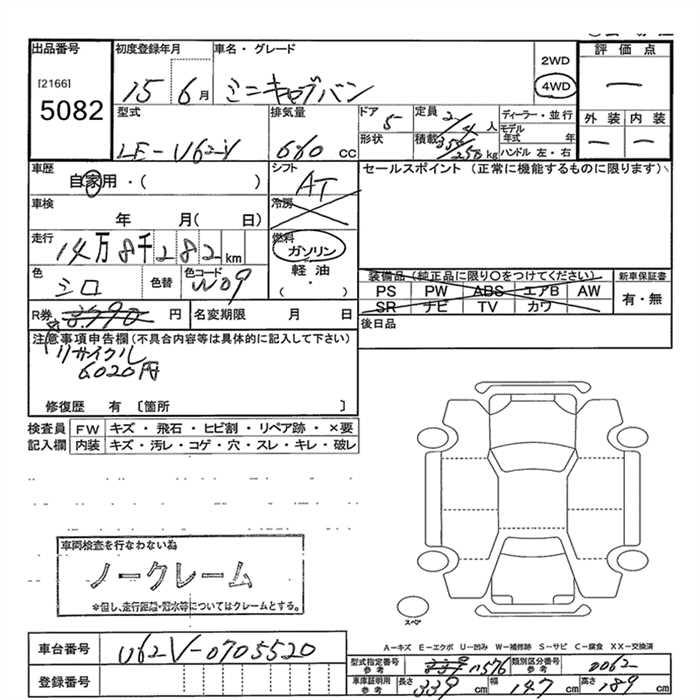 出品番号
[2166]
5082
初度登録年月
15 6月
車名・グレード
ミニキャブバン
2WD
4WD
評価点
ー
外装 内装
ー ー
型式
LE-U62V
排気量
660 cc
ドア
5
形状
定員
2/4人
積載
350/250 kg
ディーラー・並行
モデル年式 年
ハンドル 左・右
車歴
自家用・( )
シフト
AT
セールスポイント (正常に機能するものに限ります)
車検
年 月( 日)
冷房
走行
14万8千282km
燃料
ガソリン
軽油
( ・ )
色
シロ
色替
色コード
W09
装備品 (純正品に限り〇をつけてください)
PS PW ABS エアB AW
SR ナビ TV カワ
新車保証書
有・無
R券
円
名変期限 月 日
後日品
注意事項申告欄(不具合内容等は具体的に記入して下さい)
リサイクル
6020円
修復歴 有 [箇所 ]
検査員
記入欄
FW キズ・飛石・ヒビ割・リペア跡・×要
内装 キズ・汚レ・コゲ・穴・スレ・キレ・破レ
車両検査を行なわない為
ノークレーム
※但し、走行距離・冠水等についてはクレームとする。
スペア
A-キズ E-エクボ U-凹み W-補修跡 S-サビ C-腐食 XX-交換済
車台番号
U62V-0705520
登録番号
型式指定番号
参考
n576
類別区分番号
参考
0062
車庫証明用
参考
長さ 339cm 幅 147cm 高さ 189cm